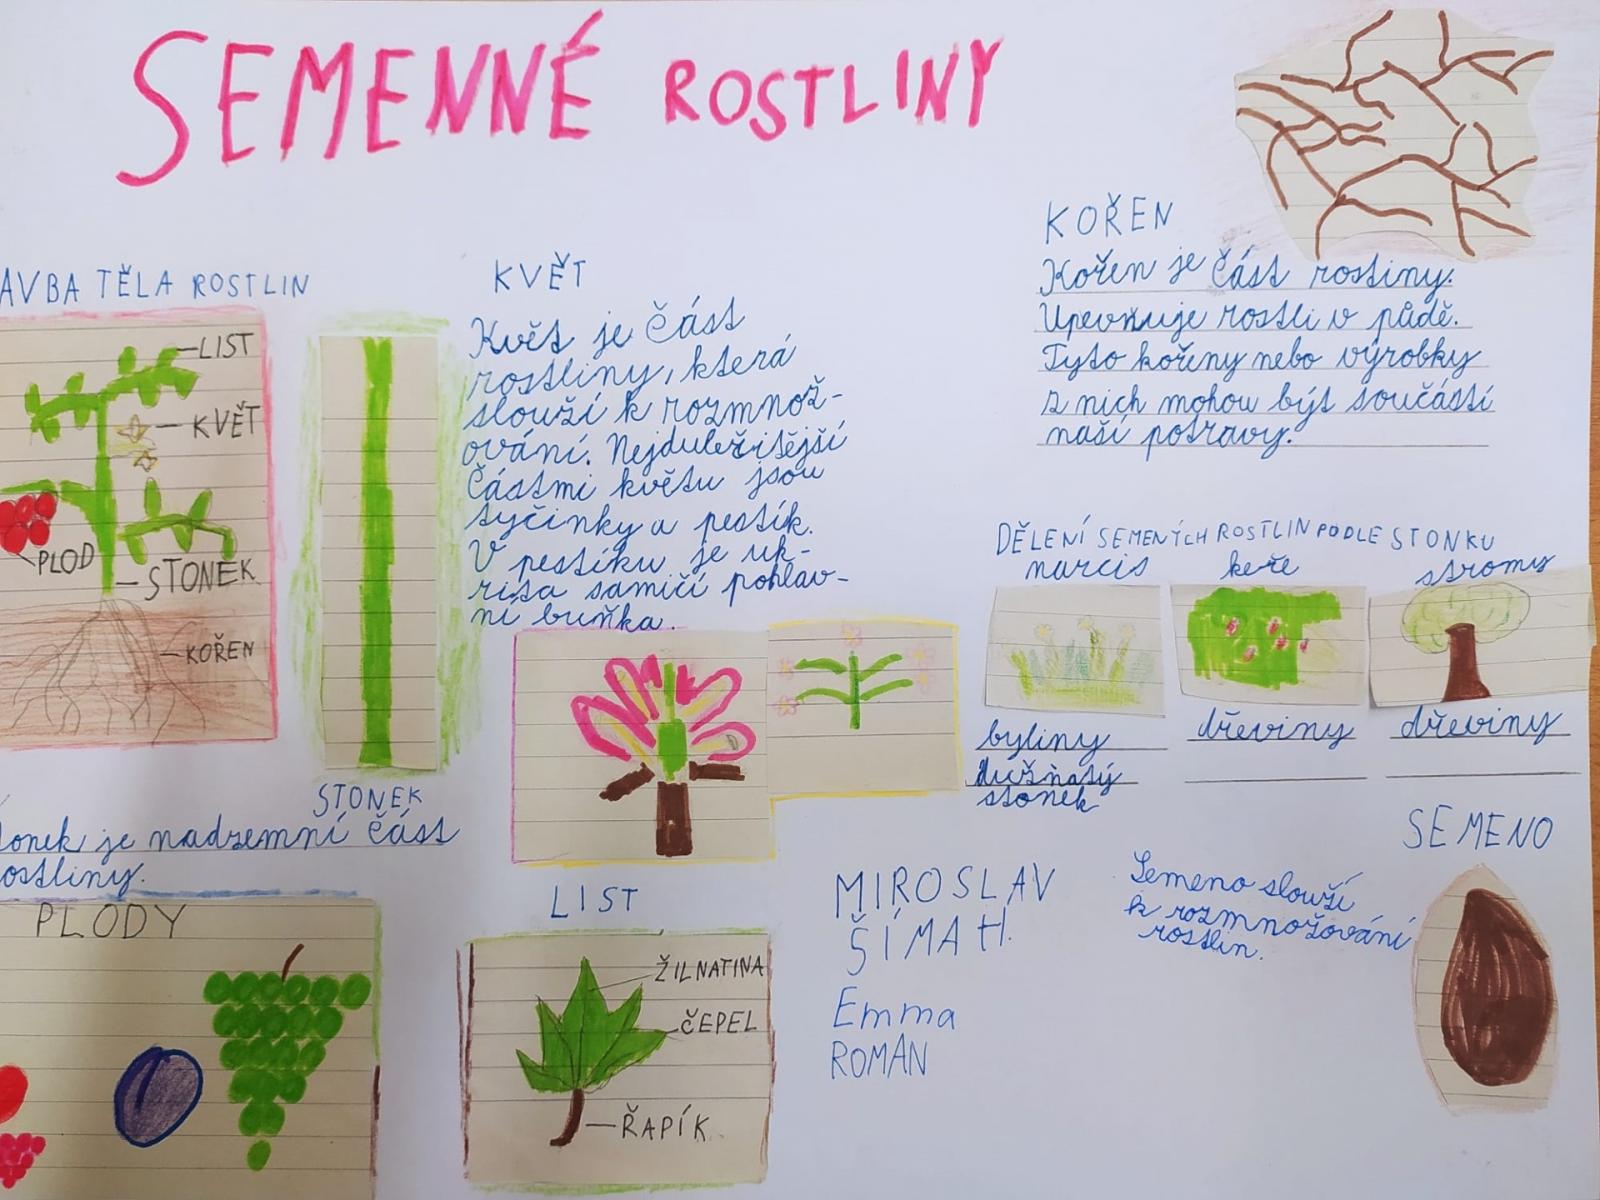 SEMENNÉ ROSTLINY
AVBA TĚLA ROSTLIN
LIST
KVĚT
PLOD
STONEK
KOŘEN
STONEK
onek je nadzemní část
ostliny.
PLODY
KVĚT
Květ je část
rostliny, která
slouží k rozmnož-
ování. Nejduležitější
částmi květu jsou
tyčinky a pestík.
V pestíku je uk-
rita samičí pohlav-
ní buňka.
LIST
ŽILNATINA
ČEPEL
ŘAPÍK
KOŘEN
Kořen je část rostiny.
Upevňuje rostli v půdě.
Tyto kořeny nebo výrobky
z nich mohou být součástí
naší potravy.
DĚLENÍ SEMENÝCH ROSTLIN PODLE STONKU
narcis keře stromy
byliny dřeviny dřeviny
dužnatý
stonek
MIROSLAV
ŠÍMA H.
Emma
ROMAN
SEMENO
Semeno slouží
k rozmnožování
rostlin.